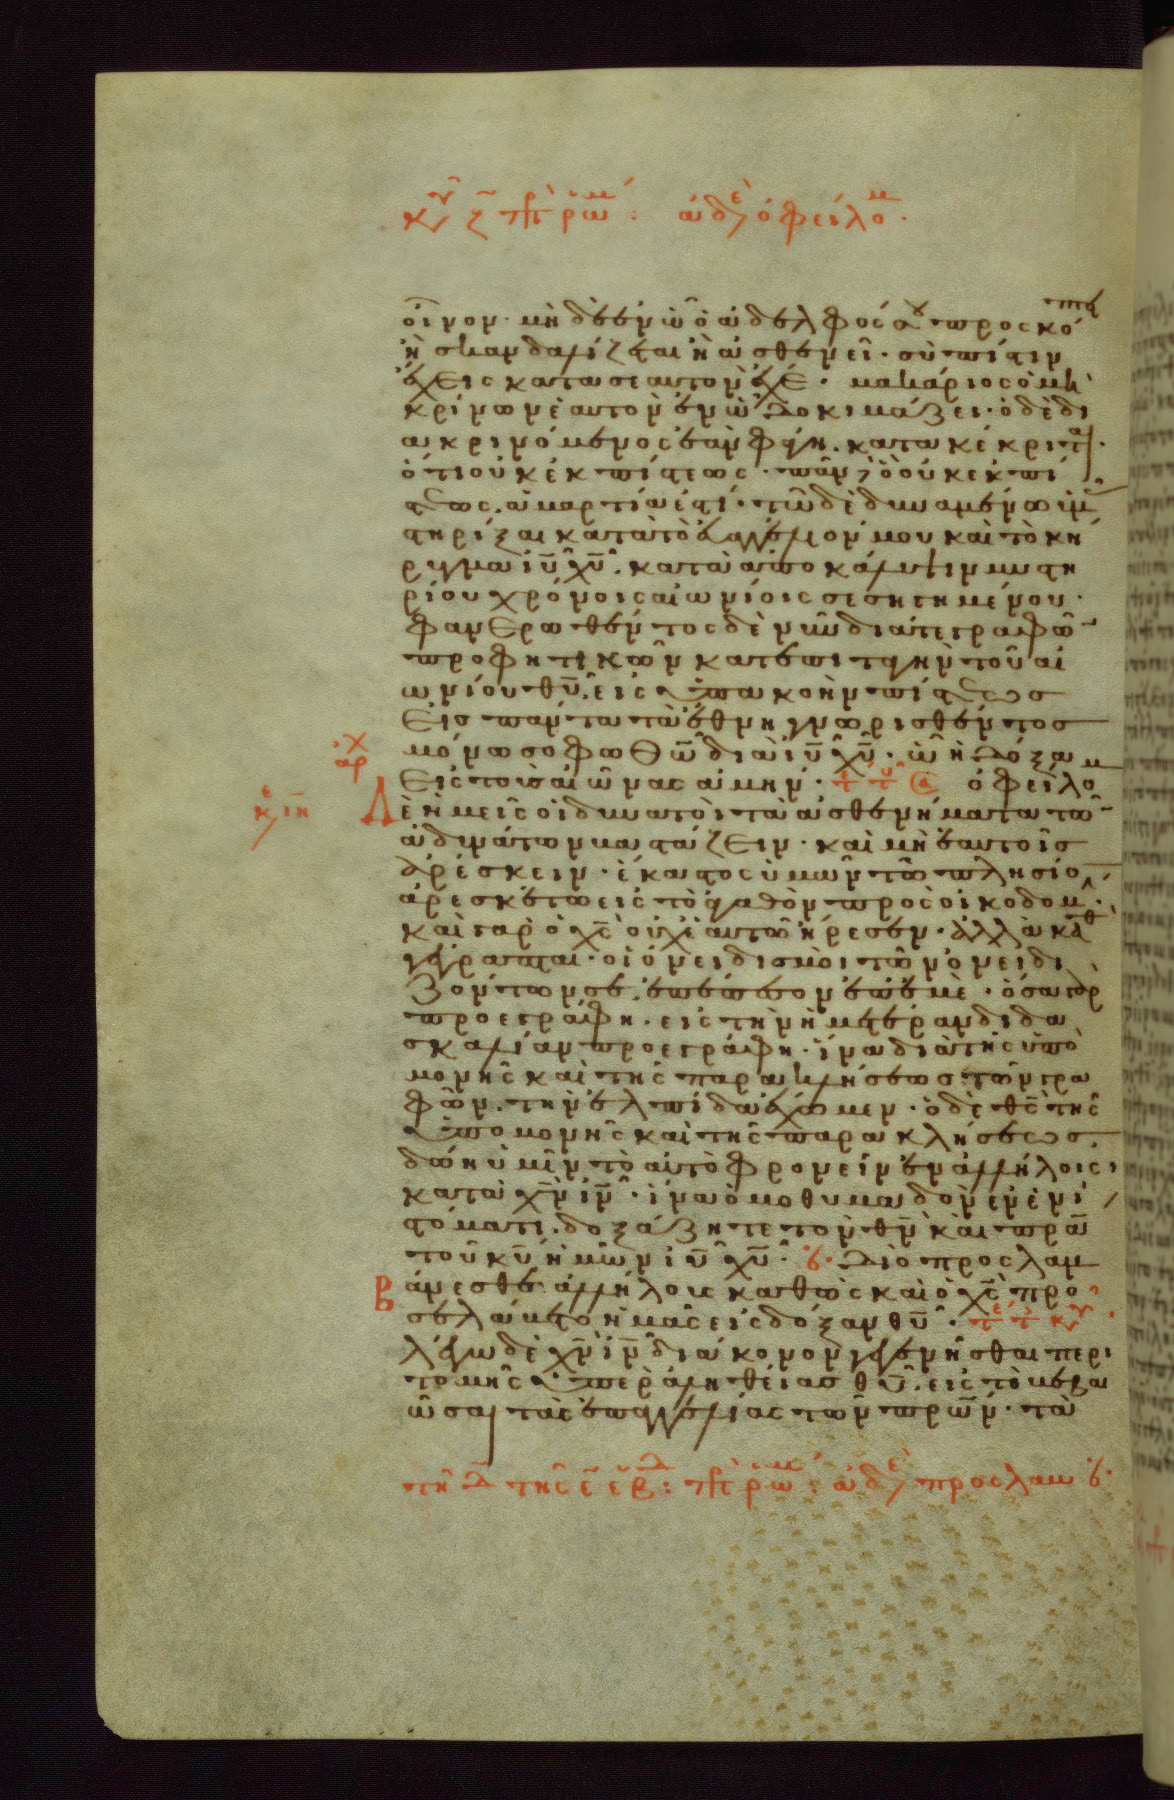 κυ ζ πρ ρωμ : αδε οφειλομ .
οἶνον · μὴ δὲ ἐν ὧ ὁ ἀδελφός σου προσκόπτει
ἢ σκανδαλίζεται ἢ ἀσθενεῖ · σὺ πίστιν
ἔχεις κατα σεαυτὸν ἔχε · μακάριος ὁ μὴ
κρίνων ἑαυτὸν ἐν ὧ δοκιμάζει · ὁ δὲ δι
ακρινόμενος ἐὰν φάγη · κατακέκριται ·
ὅτι οὐκ ἐκ πίστεως · πᾶν δὲ ὃ οὐκ ἐκ πί
στεως ἁμαρτία ἐστί · τῶ δὲ δυναμένω ὑμᾶς
στηρίξαι κατὰ τὸ εὐαγγέλιον μου καὶ τὸ κή
ρυγμα ιυ χυ · κατὰ ἀποκάλυψιν μυστη
ρίου χρόνοις αἰωνίοις σεσηγημένου ·
φανερωθέντος δὲ νῦν διά τε γραφῶν
προφητικῶν κατ ἐπιταγὴν τοῦ αἰ
ωνίου θυ · εἰς ὑπακοὴν πίστεως
εἰς πάντα τὰ ἔθνη γνωρισθέντος
μόνω σοφῶ θω διὰ ιυ χυ · ὧ ἡ δόξα
αρχ
εἰς τοὺς αἰῶνας ἀμήν · ὀφείλομ
κε ιη
εν ἡμεῖς οἱ δυνατοὶ τὰ ἀσθενήματα τῶν
ἀδυνάτων βαστάζειν · καὶ μὴ ἑαυτοῖς
ἀρέσκειν · ἕκαστος ὑμῶν τῶ πλησίον
ἀρεσκέτω εἰς τὸ ἀγαθὸν πρὸς οἰκοδομήν ·
καὶ γὰρ ὁ χς οὐχ ἑαυτῶ ἤρεσεν · ἀλλὰ καθὼς
γέγραπται · οἱ ὀνειδισμοὶ τῶν ὀνειδι
ζόντων σε ἐπέπεσον ἐπ ἐμὲ · ὅσα γὰρ
προεγράφη · εἰς τὴν ἡμετέραν διδα
σκαλίαν προεγράφη · ἵνα διὰ τῆς ὑπο
μονῆς καὶ τῆς παρακλήσεως τῶν γρα
φῶν · τὴν ἐλπίδα ἔχωμεν · ὁ δὲ θς τῆς
ὑπομονῆς καὶ τῆς παρακλήσεως
δώη ὑμῖν τὸ αὐτὸ φρονεῖν ἐν ἀλλήλοις
κατὰ χν ιν · ἵνα ὁμοθυμαδὸν ἐν ἑνὶ
στόματι · δοξάζητε τὸν θν καὶ πρα
τοῦ κυ ἡμῶν ιυ χυ · διὸ προσλαμ
βάνεσθε ἀλλήλους καθὼς καὶ ὁ χς προ
σελάβετο ἡμᾶς εἰς δόξαν θυ ·
λέγω δὲ χν ιν διάκονον γεγενῆσθαι περι
τομῆς ὑπὲρ ἀληθείας θυ · εἰς τὸ βεβαι
ῶσαι τὰς ἐπαγγελίας τῶν πρων · τὰ
τη δ της ε εβδ : πρ ρωμ : αδε προσλαμβ ·